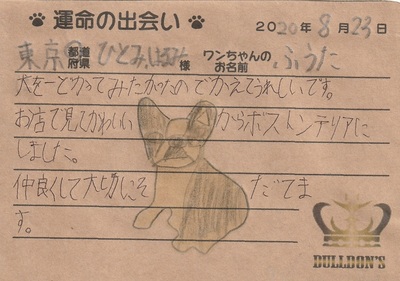 運命の出会い 2020年8月23日
東京都道府県 ひとみ 様 ワンちゃんのお名前 ふうた
犬を一どかってみたかったのでかえてうれしいです。
お店で見てかわいい からボストンテリアに
しました。
仲良くして大切にそ だてま
す。
BULLDON'S